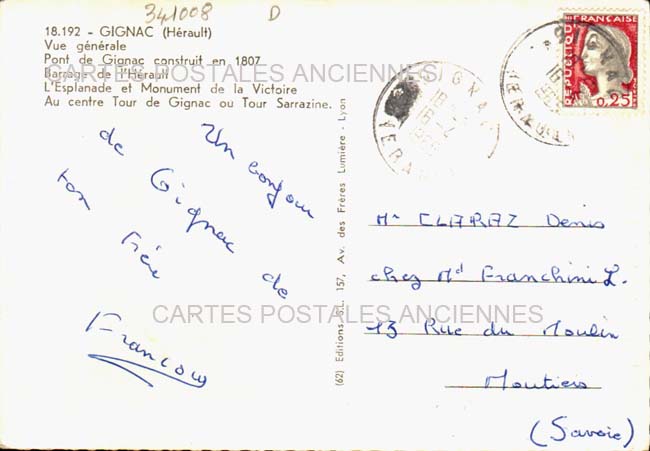 341008 D
18.192 - GIGNAC (Hérault)
Vue générale
Pont de Gignac construit en 1807
Barrage de l'Hérault
L'Esplanade et Monument de la Victoire
Au centre Tour de Gignac ou Tour Sarrazine.
CARTES POSTALES ANCIENNES
Un bonjour
de Gignac de
ton frère
François
(62) Editions S.L. 157, Av. des Frères Lumière - Lyon
GIGNAC
HERAULT
GIGNAC
HERAULT
REPUBLIQUE FRANÇAISE
0,25
Mr CLARAZ Denis
chez Md Franchini L.
13 Rue du Moulin
Moutiers
(Savoie)
CARTES POSTALES ANCIENNES